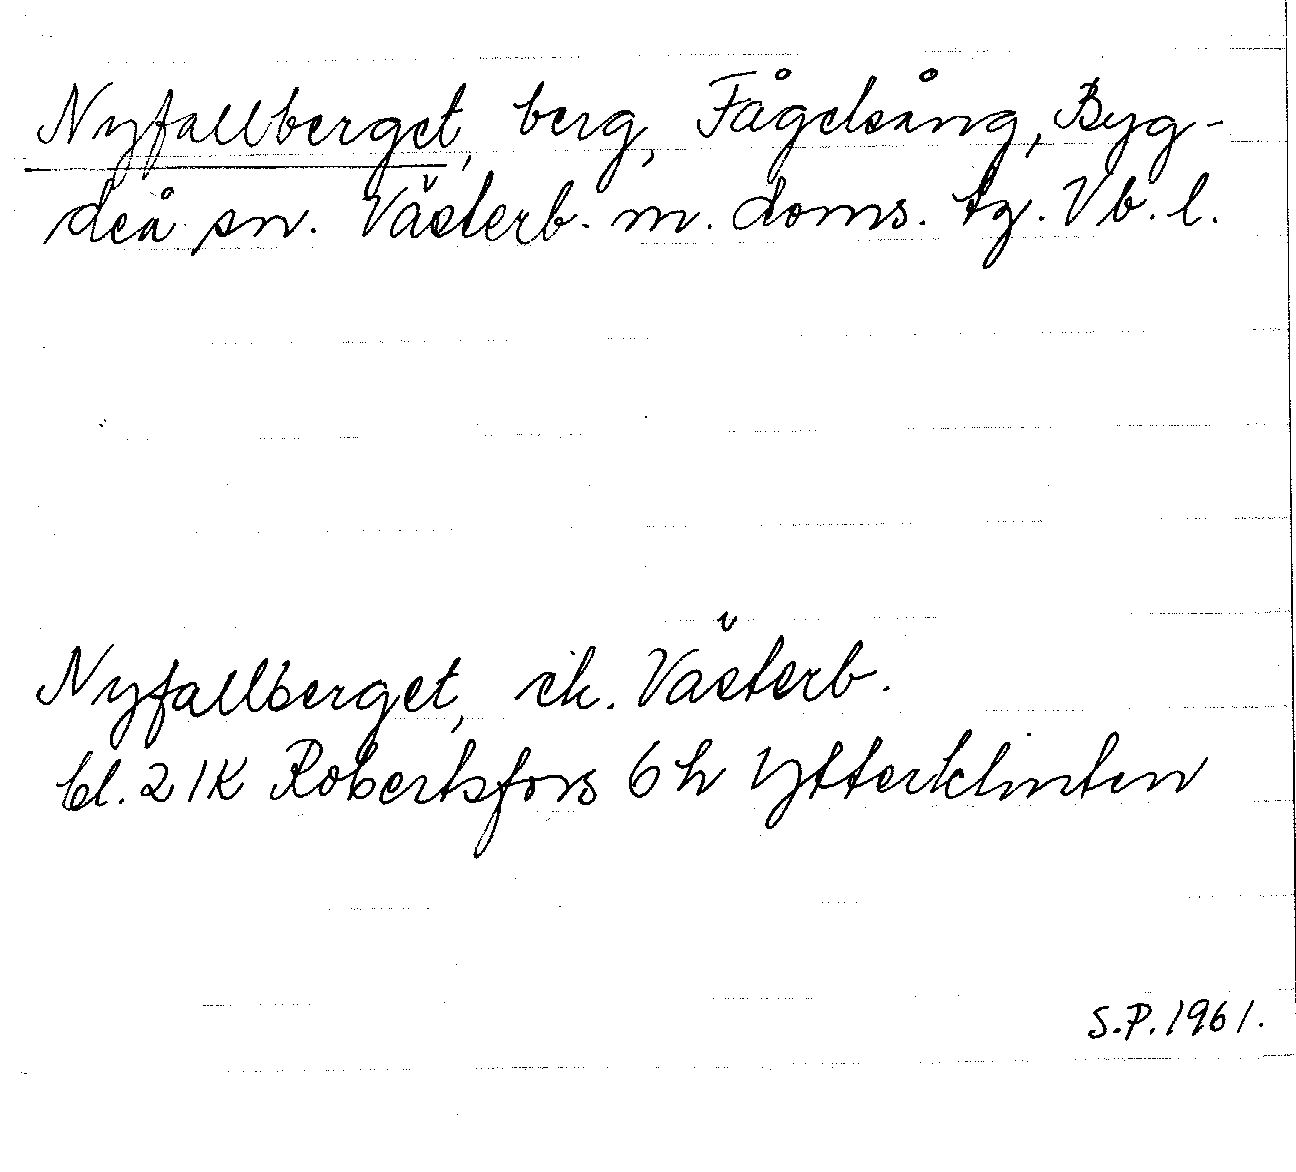 Nyfallberget, berg, Fågelsång, Byg-
deå sn. Västerb. m. doms. tg. Vb. l.
Nyfallberget, ek. Västerb.
bl. 21K Robertsfors 6h Ytterklinten
S.P. 1961.